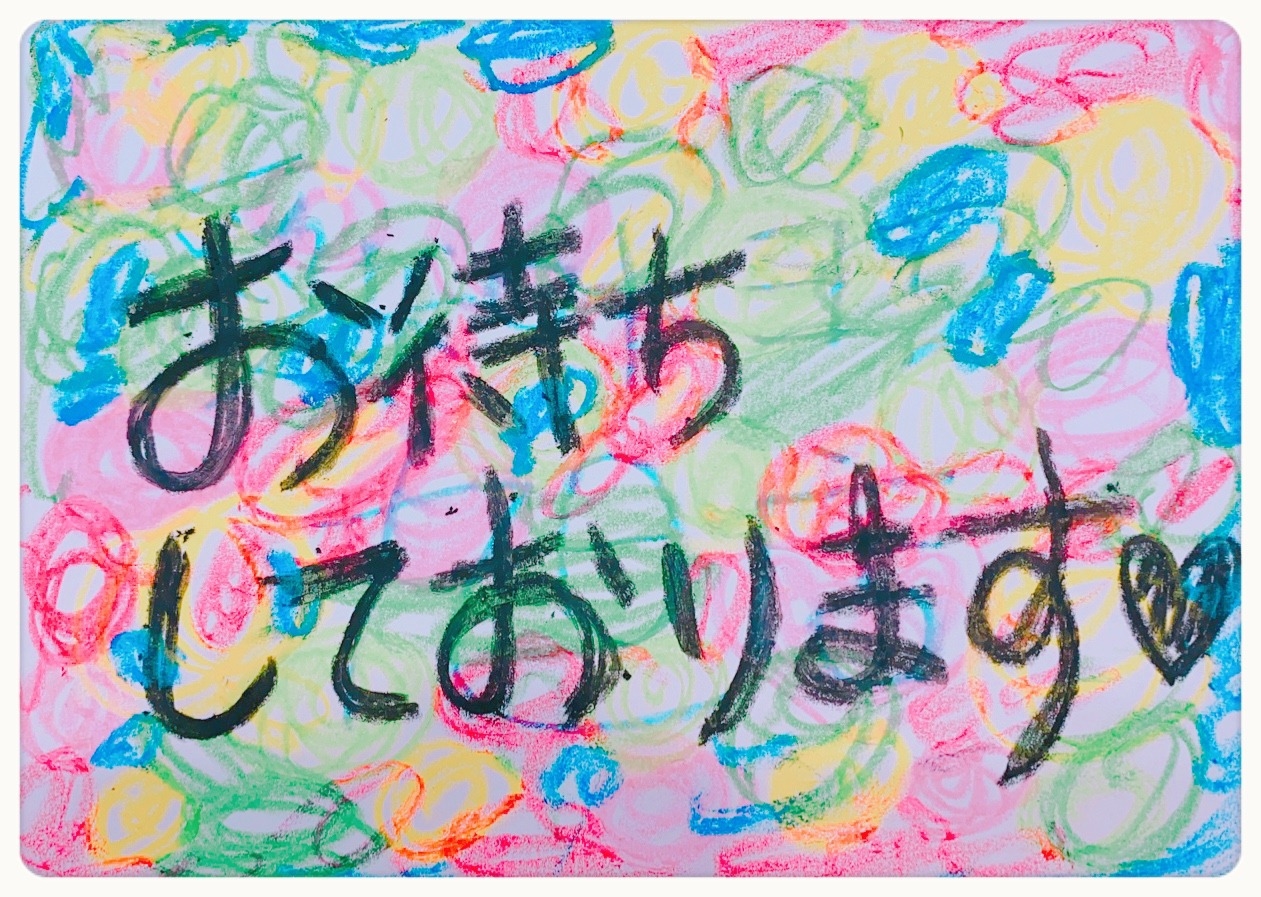 お待ち
しております♥